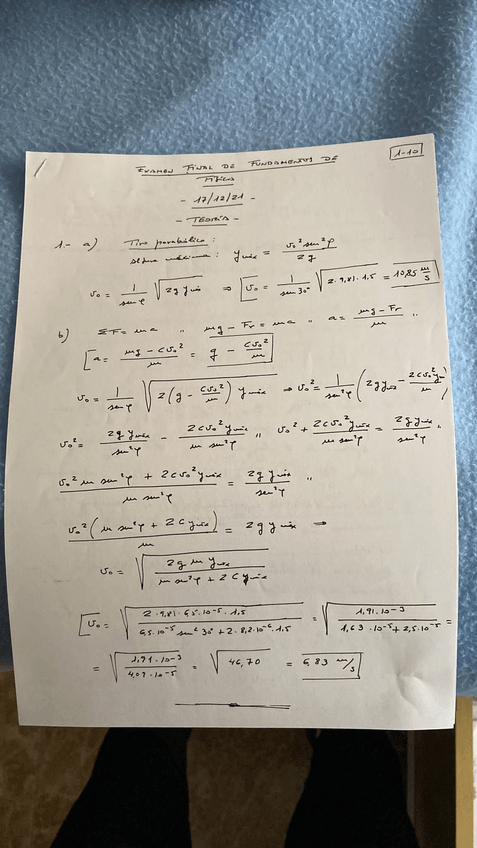 1-10
EXAMEN FINAL DE FUNDAMENTOS DE
FÍSICA
- 17/12/21 -
- TEORÍA -
1.- a) Tiro parabólico:
altura máxima: y máx = v₀² sen²φ / 2g
v₀ = 1/senφ √(2g y máx) ⇒ [v₀ = 1/sen 30° √(2·9,81·1,5) = 10,85 m/s]
b) ΣF = ma " mg - Fr = ma " a = mg - Fr / m "
[a = mg - cv₀² / m = g - cv₀²/m]
v₀ = 1/senφ √(2(g - cv₀²/m) y máx) → v₀² = 1/sen²φ (2g y máx - 2cv₀² y máx / m)
v₀² = 2g y máx / sen²φ - 2cv₀² y máx / m sen²φ " v₀² + 2cv₀² y máx / m sen²φ = 2g y máx / sen²φ "
v₀² m sen²φ + 2cv₀² y máx / m sen²φ = 2g y máx / sen²φ "
v₀² (m sen²φ + 2c y máx) / m = 2g y máx ⇒
v₀ = √(2g m y máx / m sen²φ + 2c y máx)
[v₀ = √(2·9,81·6,5·10⁻⁵·1,5 / 6,5·10⁻⁵ sen² 30° + 2·8,2·10⁻⁶·1,5) = √(1,91·10⁻³ / 1,63·10⁻⁵ + 2,5·10⁻⁵) =
= √(1,91·10⁻³ / 4,09·10⁻⁵) = √46,70 = 6,83 m/s]